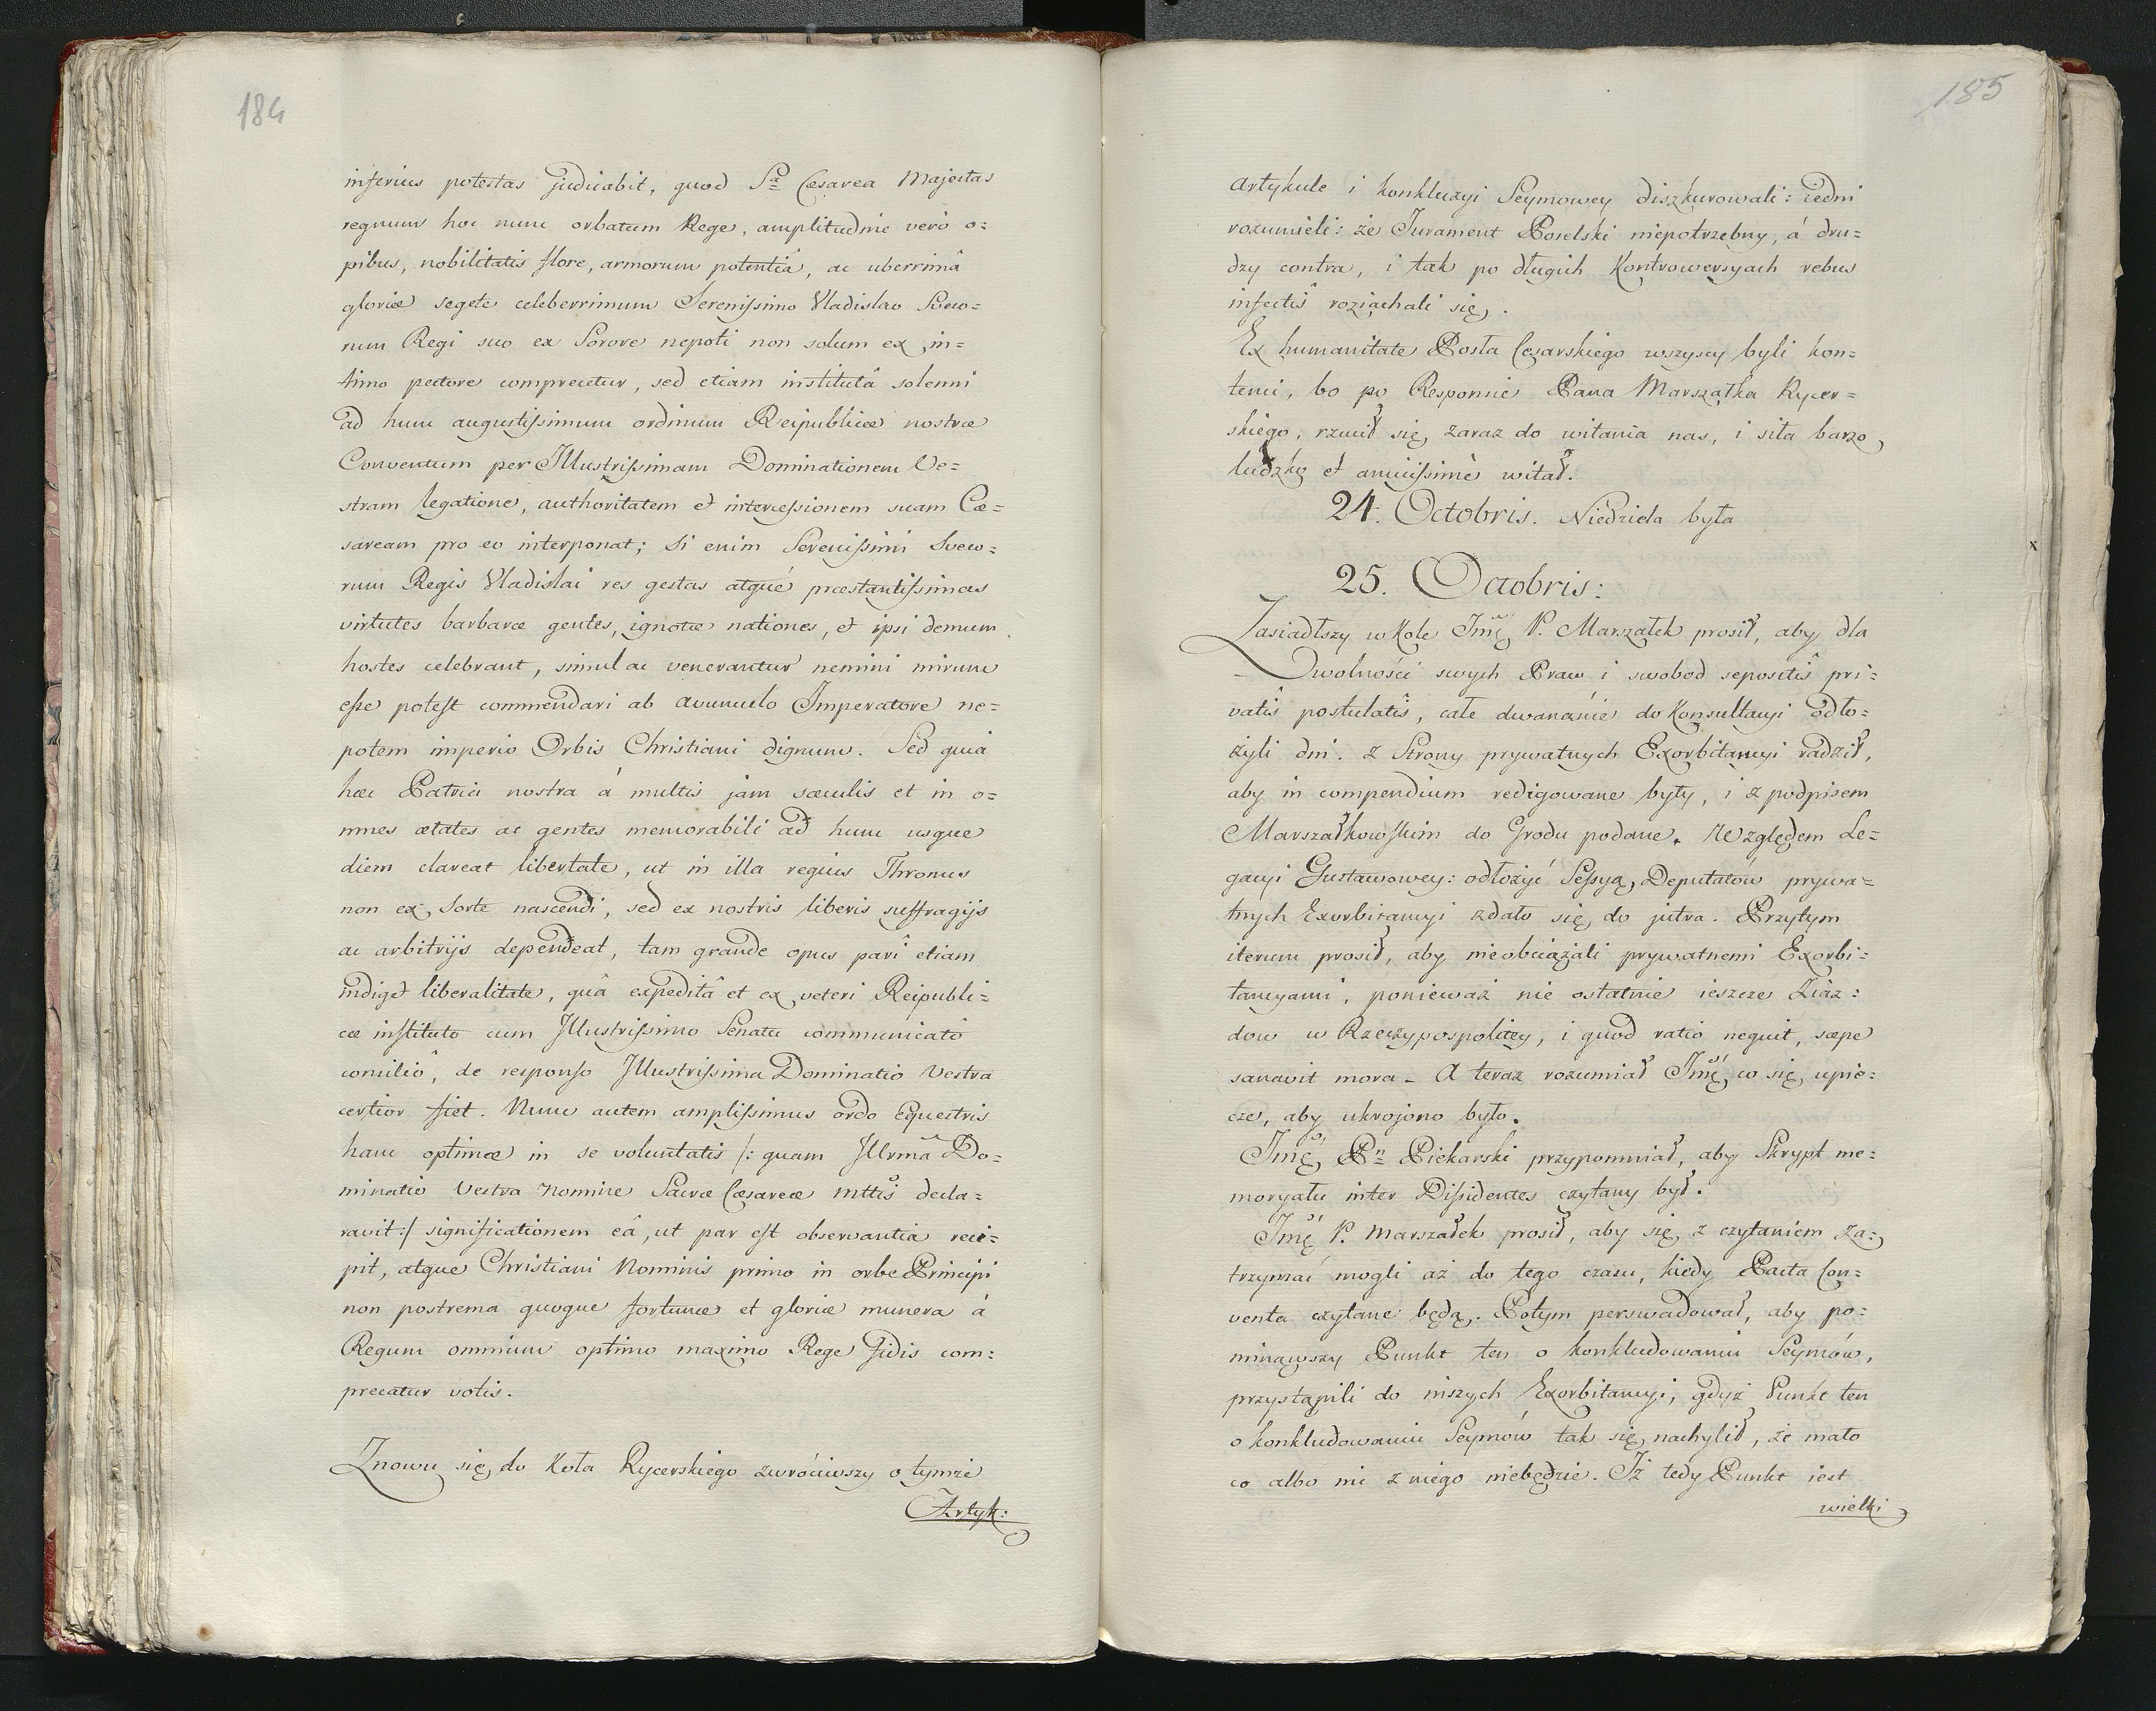 184
inferius potestas judicabit, quod Sa Cæsarea Majestas
regnum hoc nunc orbatum Rege, amplitudine verò o=
pibus, nobilitatis flore, armorum potentiâ, ac uberrimâ
gloriæ segete celeberrimum Serenissimo Vladislao Sveco=
rum Regi suo ex Sorore nepoti non solum ex in=
timo pectore comprecetur, sed etiam institutâ solenni
ad hunc augustissimum ordinum Reipublicæ nostræ
Conventum per Illustrissimam Dominationem Ve=
stram legatione, authoritatem et intercessionem suam Cæ=
saream pro eo interponat; Si enim Serenissimi Sveco=
rum Regis Vladislai res gestas atqué præstantissimas
virtutes barbaræ gentes, ignotæ nationes, et ipsi demum
hostes celebrant, simul ac venerantur nemini mirum
esse potest commendari ab avunculo Imperatore ne=
potem imperio Orbis Christiani dignum. Sed quia
hæc Patria nostra á multis jam sæculis et in o=
mnes ætates ac gentes memorabili ad hunc usque
diem clareat libertate, ut in illa regius Thronus
non ex Sorte nascendi, sed ex nostris liberis suffragijs
ac arbitrijs dependeat, tam grande opus pari etiam
indiget liberalitate, quâ expeditâ et ex veteri Reipubli=
cæ instituto cum Illustrissimo Senatu communicato
consiliô, de responso Illustrissima Dominatio Vestra
certior fiet. Nunc autem amplissimus ordo Equestris
hanc optimæ in se voluntatis /: quam Illrmâ Do=
minatio Vestra Nomine Sacræ Cæsareæ mttis decla=
ravit:/ significationem eâ, ut par est observantia reci=
pit, atque Christiani Nominis primo in orbe Principi
non postrema quoque fortunæ et gloriæ munera á
Regum omnium optimo maximo Rege fidis com=
precatur votis.
Znowu się do Koła Rycerskiego zwróciwszy o tymże
Artyk:
185
Artykule i konkluzyi Seymowey diszkurowali: iedni
rozumieli: że Jurament Poselski niepotrzebny, á dru=
dzy contra, i tak po długich Kontrowersyach rebus
infectis roziachali się.
Ex humanitate Posła Cesarskiego wszyscy byli kon=
tenci, bo po Responsie Pana Marszałka Rycer=
skiego, rzucił się zaraz do witania nas, i siła barzo
ludzko et amicissimè witał.
24. Octobris. Niedziela była
25. Octobris:
Zasiadłszy w Kole Jmć P. Marszałek prosił, aby dla
wolności swych Praw i swobod sepositis pri=
vatis postulatis, całe dwanaście do Konsultacyi odło=
żyli dni. Z Strony prywatnych Exorbitancyi radził,
aby in compendium redigowane były, i z podpisem
Marszałkowskim do Grodu podane. Względem Le=
gacyi Gustawowey: odłożyć Sessyą Deputatów prywa=
tnych Exorbitancyi zdało się do jutra. Przytym
iterum prosił, aby nieobciążali prywatnemi Exorbi=
tancyami, ponieważ nie ostatnie ieszcze Ziaz=
dow w Rzeczypospolitey, i quod ratio nequit, sæpe
sanavit mora - A teraz rozumiał Jmć, co się upie=
cze, aby ukrojono było.
Jmć Pn Piekarski przypomniał, aby Skrypt me=
moryału inter Dissidentes czytany był.
Jmć P. Marszałek prosił, aby się z czytaniem za=
trzymać mogli aż do tego czasu, kiedy Pacta Con=
venta czytane będą. Potym perswadował, aby po=
minąwszy Punkt ten o konkludowaniu Seymów,
przystąpili do inszych Exorbitancyi, gdyż Punkt ten
o konkludowaniu Seymów tak się nachylił, że mało
co albo nic z niego niebędzie. Iż tedy Punkt iest
wielki